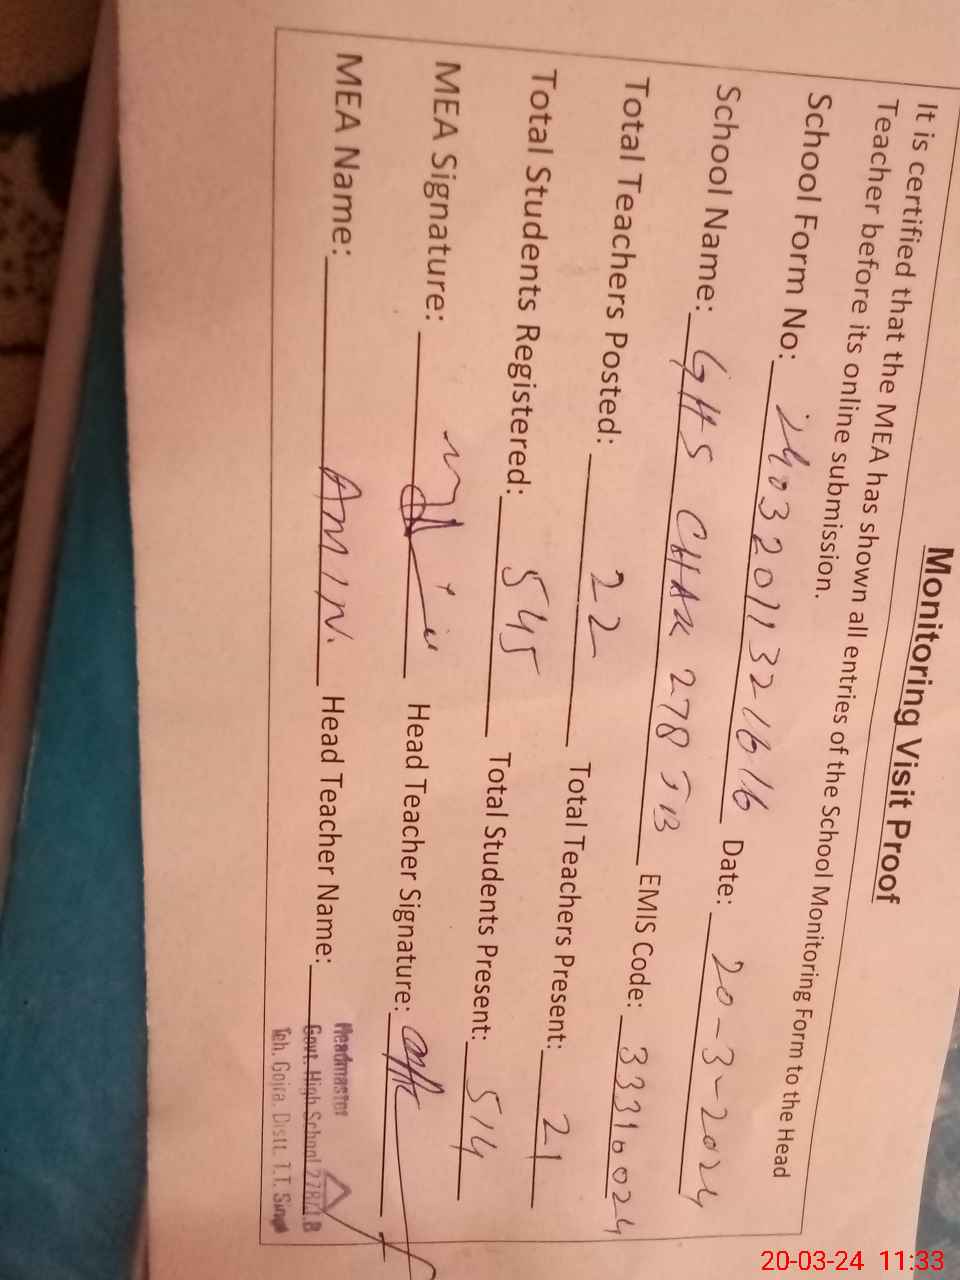 Monitoring Visit Proof
It is certified that the MEA has shown all entries of the School Monitoring Form to the Head
Teacher before its online submission.
School Form No: 24032011321616 Date: 20-3-2024
School Name: GHS CHAK 278 JB EMIS Code: 33310024
Total Teachers Posted: 22 Total Teachers Present: 21
Total Students Registered: 545 Total Students Present: 514
MEA Signature: Head Teacher Signature:
MEA Name: AMIN. Head Teacher Name:
Headmaster
Govt. High School 278/J.B
Teh. Gojra. Distt. T.T. Singh
20-03-24 11:33